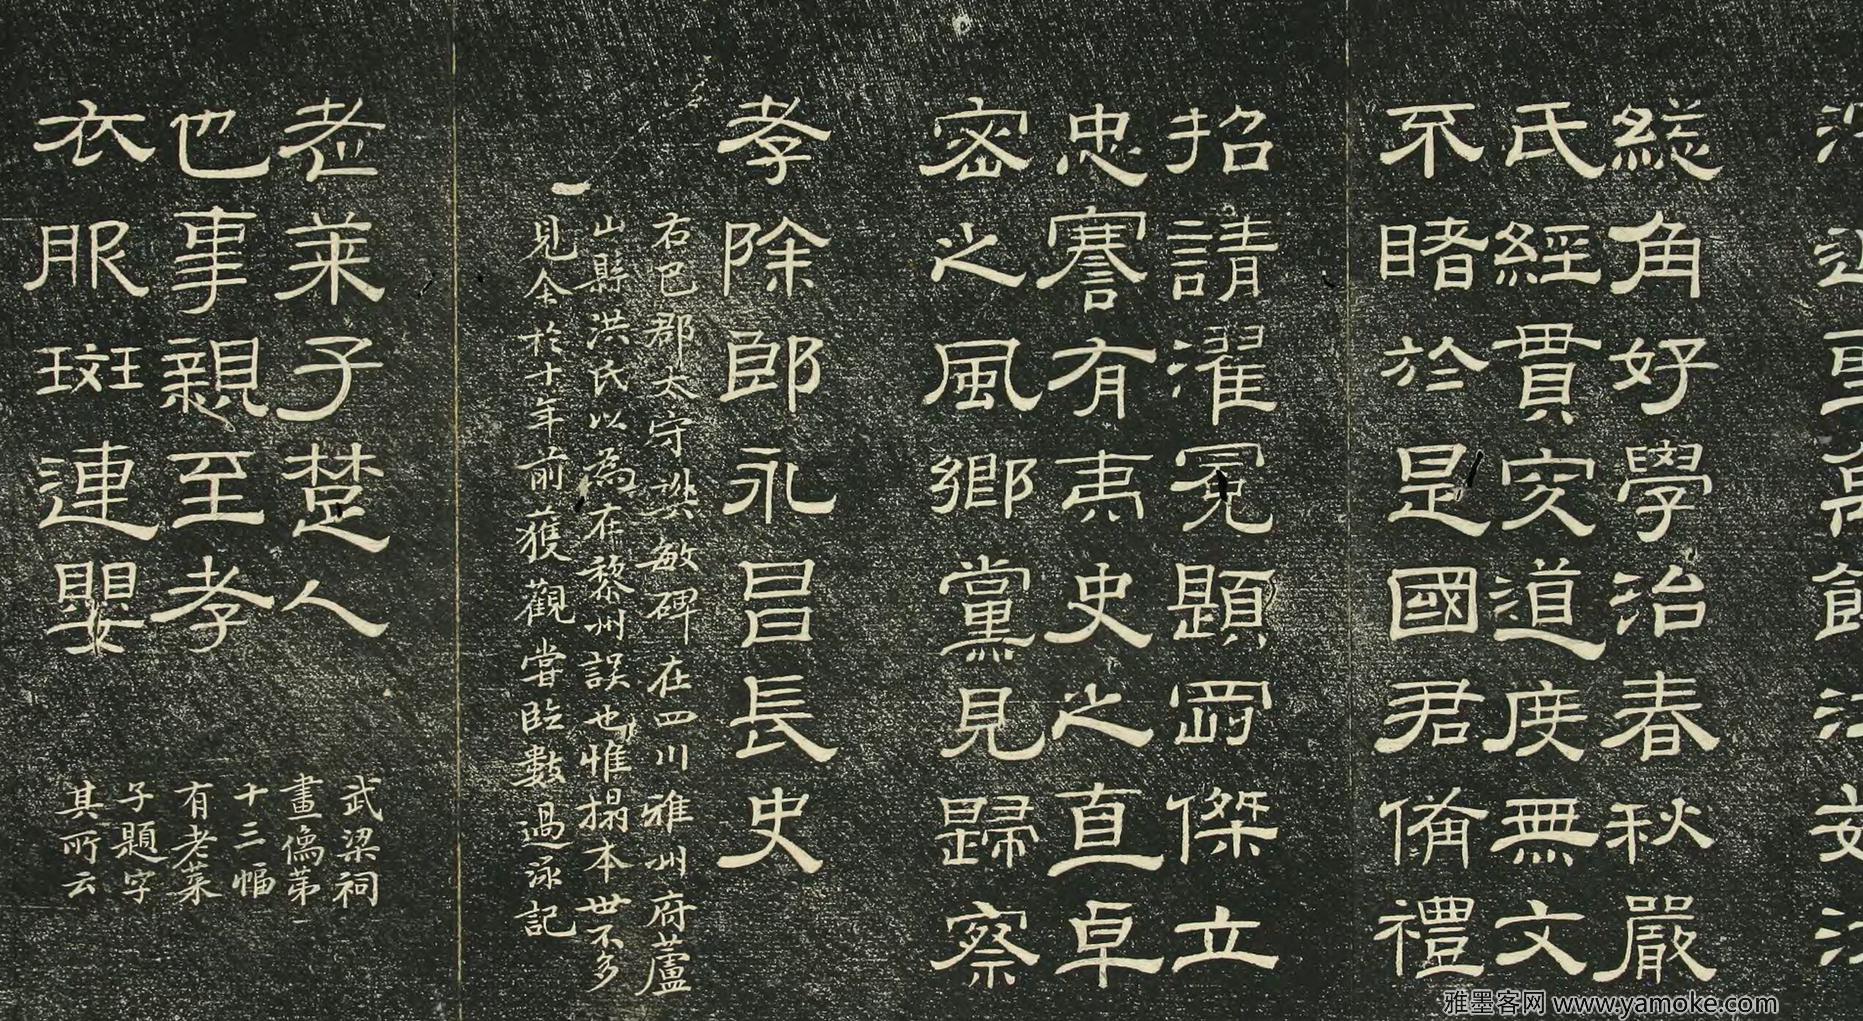 緫角好學治春秋嚴
氏經貫究道度無文
不睹於是國君備禮
招請濯冕題剛傑立
忠謇有夷史之直卓
密之風鄉黨見歸察
孝除郎永昌長史
右巴郡太守樊敏碑在四川雅州府蘆
山縣洪氏以為在黎州誤也惟搨本世不多
見余於十年前獲觀嘗臨數過泳記
老萊子楚人
也事親至孝
衣服斑連嬰
武梁祠
畫像第
十三幅
有老萊
子題字
其所云
雅墨客网 www.yamoke.com